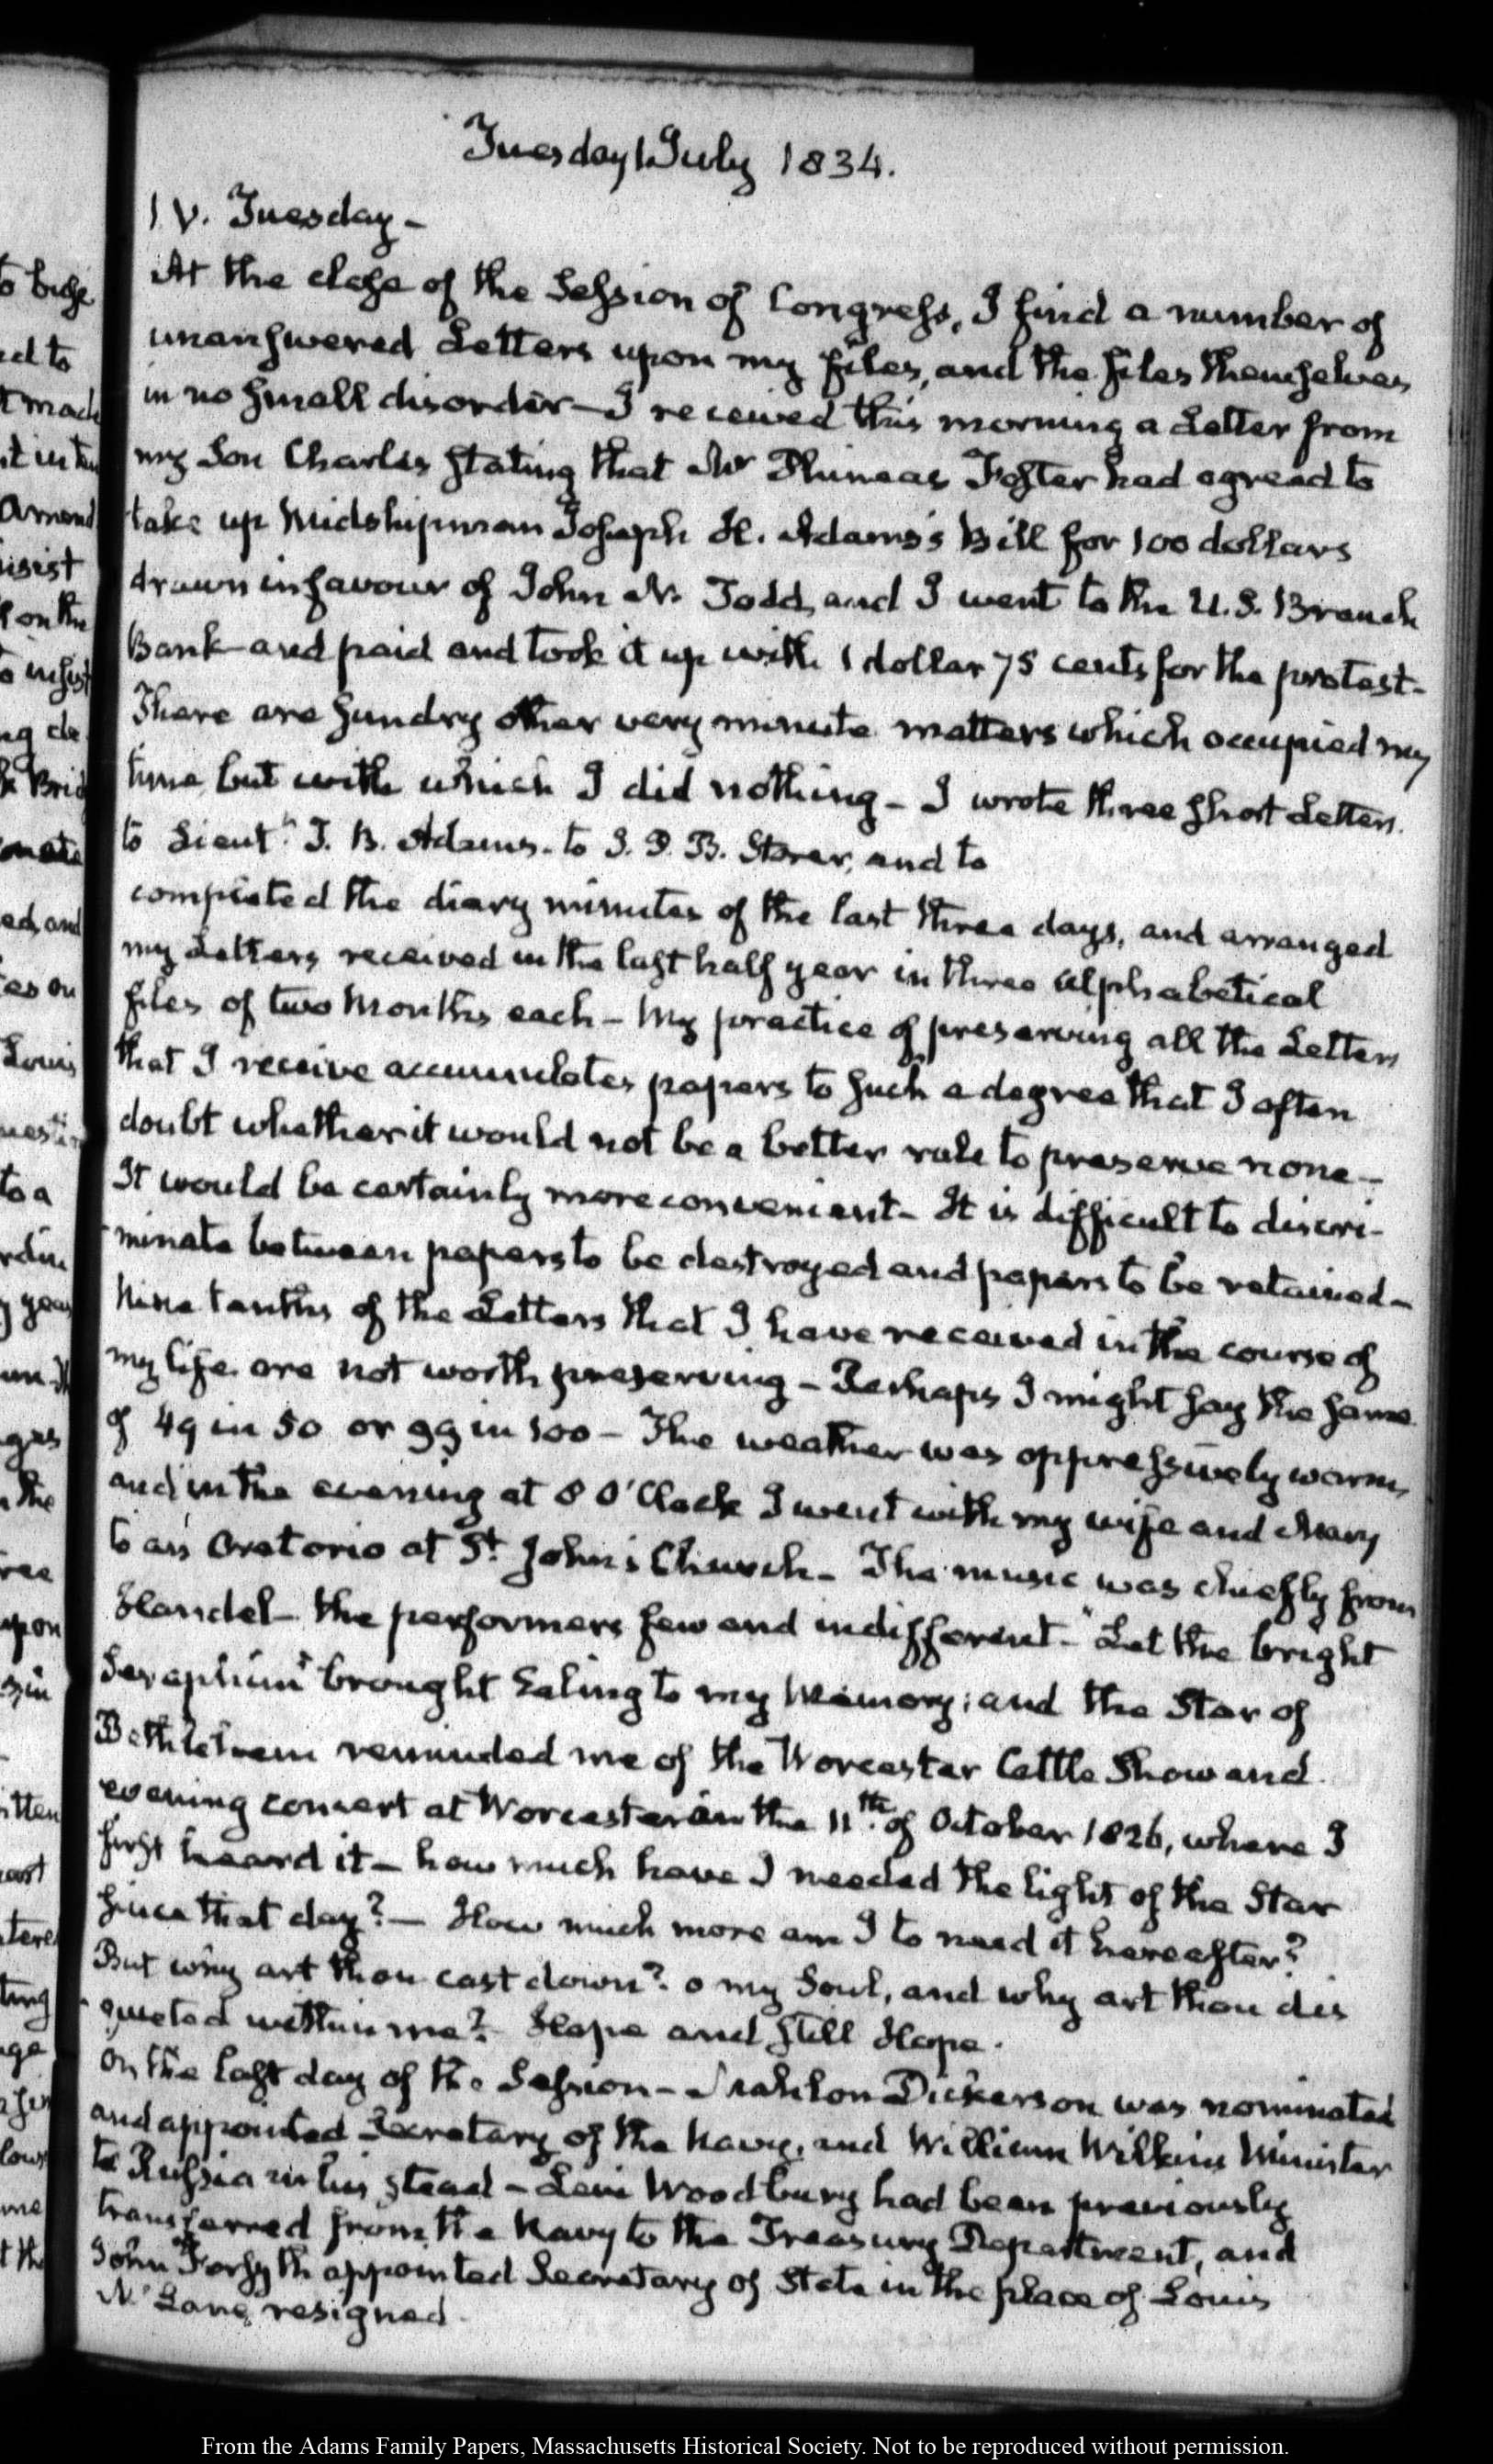 Tuesday 1 July 1834.
1 V. Tuesday –
At the close of the Session of Congress, I find a number of
unanswered Letters upon my files, and the files themselves
in no small disorder – I received this morning a Letter from
my Son Charles stating that Mr Phineas Foster had agreed to
take up Midshipman Joseph H. Adams's Bill for 100 dollars
drawn in favour of John N. Todd, and I went to the U.S. Branch
Bank and paid and took it up with 1 dollar 75 cents for the protest –
There are sundry other very minute matters which occupied my
time, but with which I did nothing – I wrote three short Letters.
to Lieutt. T. B. Adams. to S. D. B. Storer, and to
completed the diary minutes of the last three days, and arranged
my Letters received in the last half year in three alphabetical
files of two Months each – My practice of preserving all the Letters
that I receive accumulates papers to such a degree that I often
doubt whether it would not be a better rule to preserve none –
It would be certainly more convenient – It is difficult to discri-
minate between papers to be destroyed and papers to be retained –
Nine tenths of the Letters that I have received in the course of
my life are not worth preserving – Perhaps I might say the same
of 49 in 50 or 99 in 100 – The weather was oppressively warm,
and in the evening at 8 O'Clock I went with my wife and Mary
to an Oratorio at St. John's Church – The music was chiefly from
Handel – the performers few and indifferent – "Let the bright
Seraphim" brought Ealing to my Memory; and the Star of
Bethlehem reminded me of the Worcester Cattle Show and
evening concert at Worcester on the 11th. of October 1826, where I
first heard it – how much have I needed the light of the Star
since that day? – How much more am I to need it hereafter?
But why art thou cast down? o my Soul, and why art thou dis
quieted within me? Hope and still Hope.
On the last day of the Session – Mahlon Dickerson was nominated
and appointed Secretary of the Navy, and William Wilkins Minister
to Russia in his stead – Levi Woodbury had been previously
transferred from the Navy to the Treasury Department, and
John Forsyth appointed Secretary of State in the place of Louis
Mc Lane resigned.
From the Adams Family Papers, Massachusetts Historical Society. Not to be reproduced without permission.